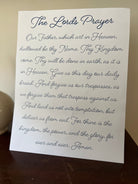 The Lord's Prayer
Our Father, which art in Heaven,
hallowed be thy Name. Thy Kingdom
come. Thy will be done in earth, as it is
in Heaven. Give us this day our daily
bread. And forgive us our trespasses, as
we forgive them that trespass against us.
And lead us not into temptation, but
deliver us from evil. For thine is the
kingdom, the power, and the glory, for
ever and ever. Amen.